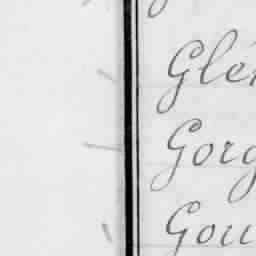 Glé
Gorg
Gou